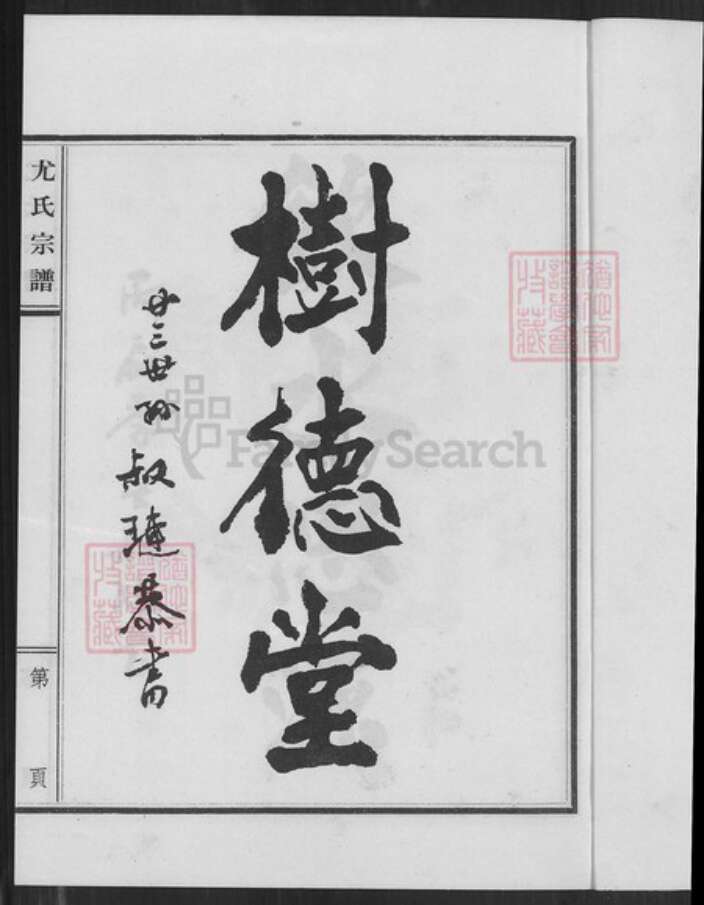 樹德堂
廿三世孫 叔璉恭書
尤氏宗譜
第 頁
FamilySearch